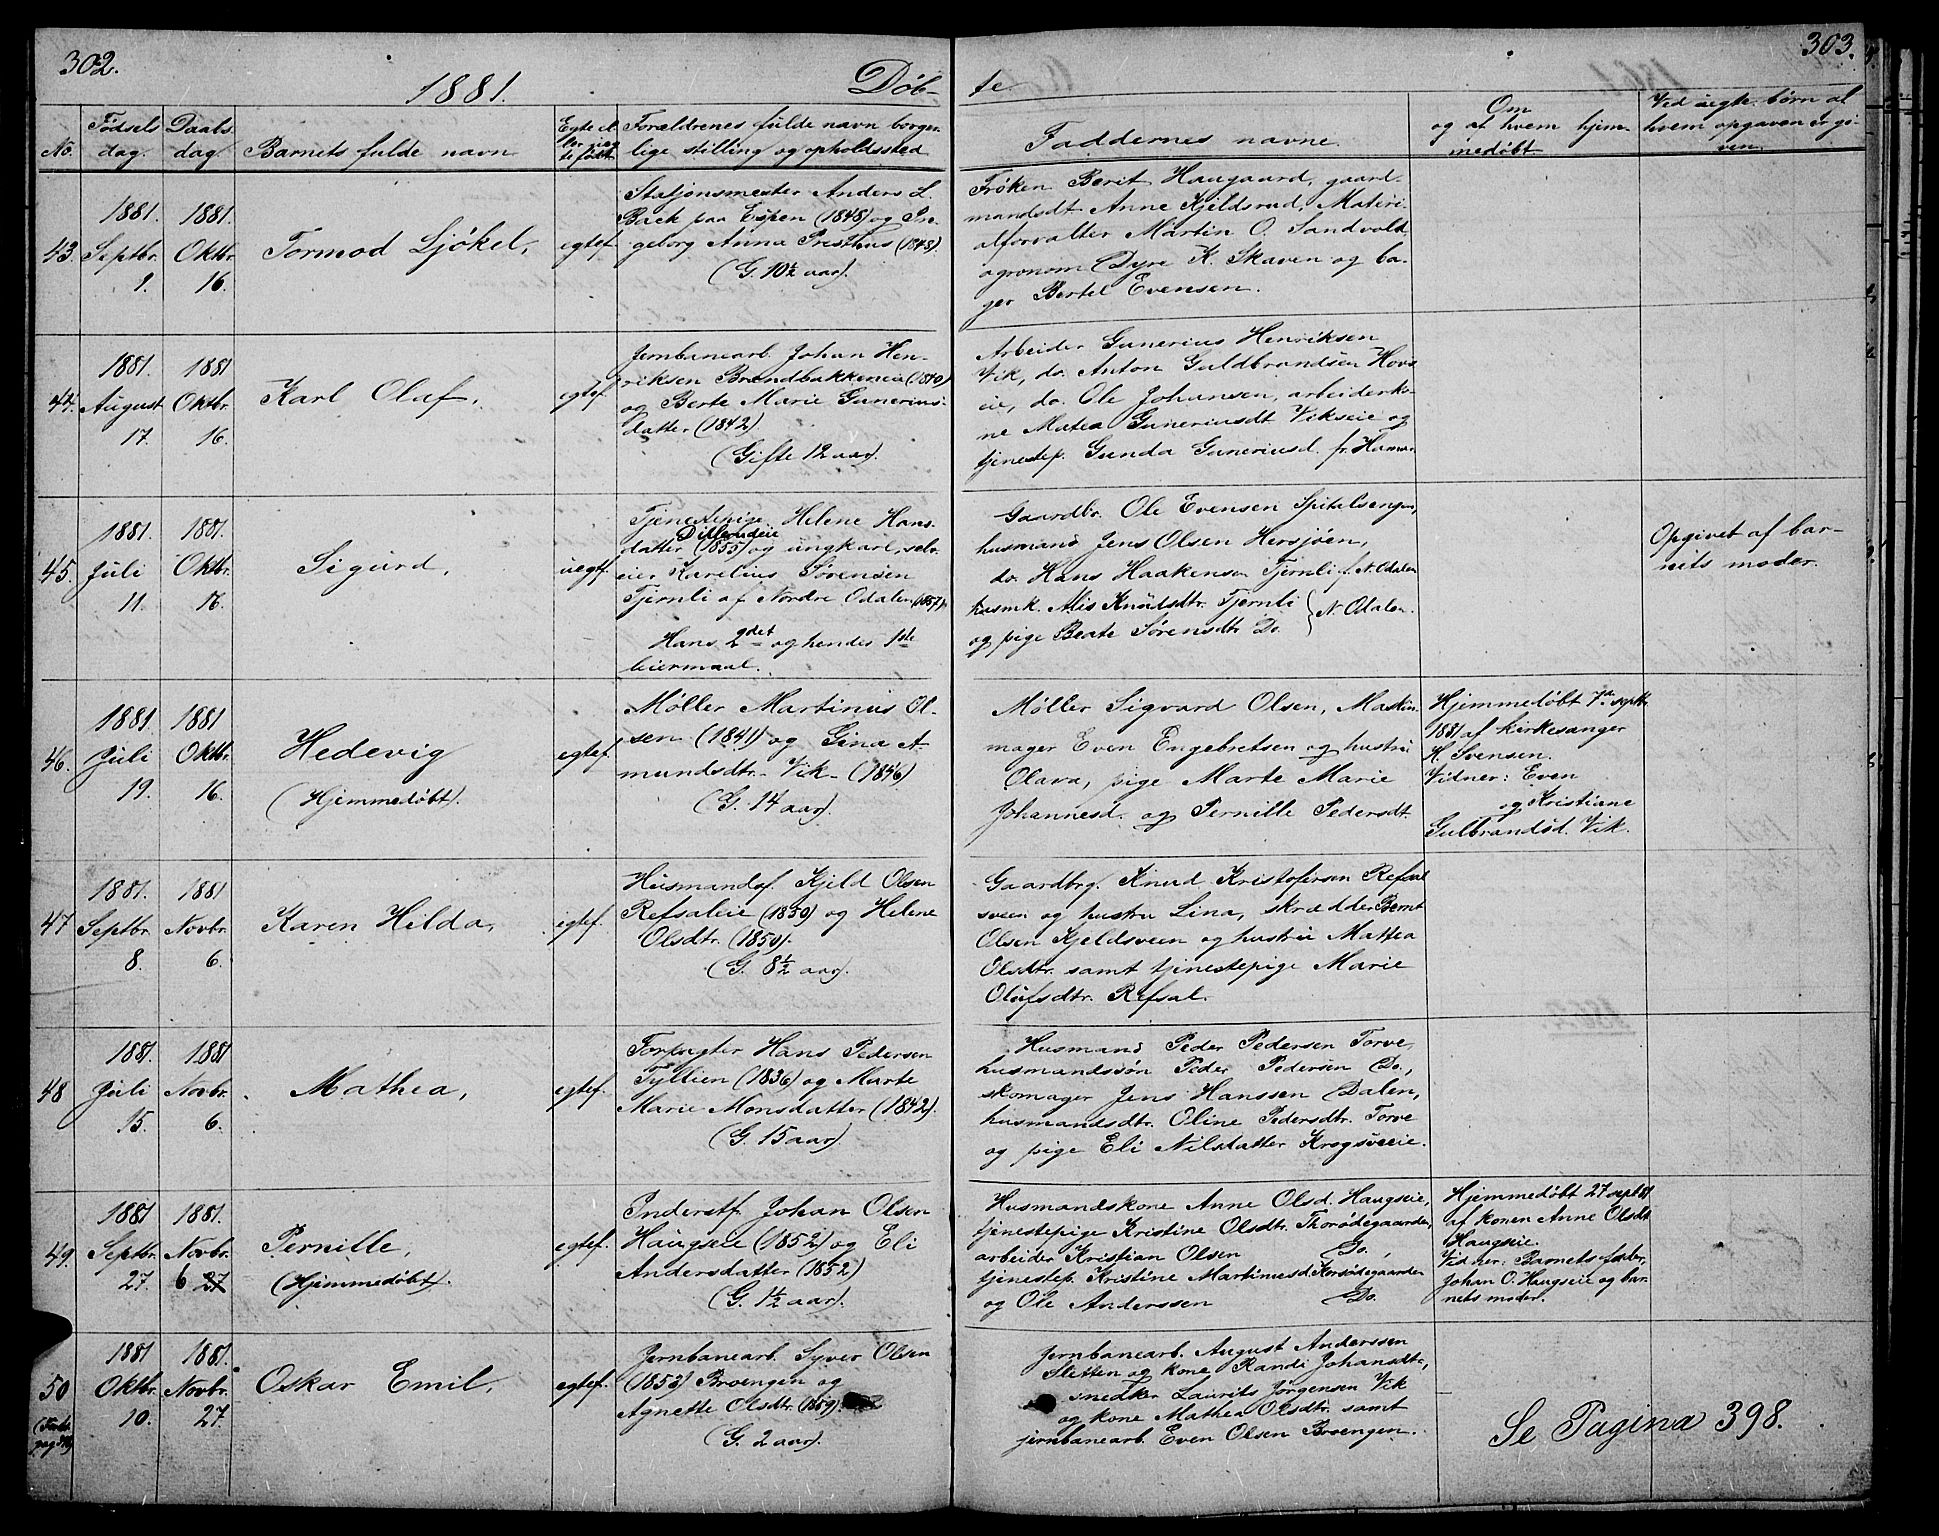 302.
1881.
Døb-
te.
303.
No.
Fødsels
dag.
Daabs
dag.
Barnets fulde navn
Egte el
ler ueg
te født
Forældrenes fulde navn borger
lige stilling og opholdssted
Faddernes navne.
Om
og af hvem hjem-
medøbt
Ved uegte børn af
hvem opgaven er gi-
ven.
43.
1881.
Septbr.
9.
1881.
Oktbr.
16.
Tormod Ljøkel,
egtef.
Stasjonsmester Anders L
Back paa Espen (1848) og In-
geborg Anna Presthus (1848).
(G. 10½ aar).
Frøken Berit Haugaard, gaard-
mandsdt Anne Kjeldsrud, Materi-
alforvalter Martin O. Sandvold,
agronom Dyre K. Skaven og ba-
ger Bertel Evensen.
44.
1881.
August
17.
1881
Oktbr.
16.
Karl Olaf,
egtef.
Jernbanearb. Johan Hen-
riksen Brændbakkeneie (1840)
og Berte Marie Gunerius-
datter (1842).
(Gifte 12 aar).
Arbeider Gunerius Henriksen
Vik, do. Anton Guldbrandsen Hovs
eie, do. Ole Johansen, arbeiderko-
ne Matea Guneriusdt Vikseie og
tjenestep. Gunda Guneriusd. fr. Hamar.
45.
1881.
Juli
11.
1881.
Oktbr.
16.
Sigurd,
uegtf.
Tjenestepige Helene Hans-
Dillerudeie
datter (1855) og ungkarl, selv-
eier Karelius Sørensen
Tjernli af Nordre Odalen (1857).
Hans 2det og hendes 1ste
leiermaal.
Gaardbr. Ole Evensen Spitelsengen,
husmand Jens Olsen Hersjøen,
do. Hans Haakensen Tjernli f. N. Odalen
husmk. Alis Knutsdtr. Tjernli
og pige Beate Sørensdtr Do. } N. Odalen.
Opgivet af bar-
nets moder.
46.
1881.
Juli
19.
1881
Oktbr.
16.
Hedevig
(Hjemmedøbt).
egtef.
Møller Martinus Ol-
sen (1841) og Gina A-
mundsdtr. Vik (1846)
(G. 14 aar).
Møller Sigvard Olsen, Maskin-
mager Even Engebretsen og hustru
Olava, pige Marte Marie
Johannesd. og Pernille Pedersdt.
Hjemmedøbt 7de septbr.
1881 af kirkesanger
H. Svensen.
Vidner: Even
og Kristiane
Gulbrandsd. Vik.
47
1881.
Septbr.
8.
1881
Novbr.
6.
Karen Hilda,
egtef.
Husmandsf. Kjeld Olsen
Refsaleie (1850) og Helene
Olsdtr. (1850).
(G. 8½ aar).
Gaardbrg. Knud Kristofersen Refsal
sveen og hustru Lina, skrædder Bernt
Olsen Kjeldsveen og hustru Mattea
Olsdtr. samt tjenestepige Marie
Olufsdtr. Refsal.
48
1881.
Juli
15.
1881
Novbr.
6.
Mathea,
egtef.
Forpagter Hans Pedersen
Tyllien (1836) og Marte
Marie Monsdatter (1842).
(G. 15 aar).
Husmand Peder Pedersen Torve,
husmandssøn Peder Pedersen Do.,
skomager Jens Hanssen Dalen,
husmandsdtr. Oline Pedersdtr. Torve
og pige Eli Nilsdatter Krogsveeie.
49.
1881
Septbr.
27.
1881.
Novbr.
6 27
Pernille,
(Hjemmedøbt).
egtef.
Inderstf. Johan Olsen
Haugseie (1852) og Eli
Andersdatter (1852)
(G. 1½ aar).
Husmandskone Anne Olsd. Haugseie,
tjenestepige Kristine Olsdtr. Thorødegaarden,
arbeider Kristian Olsen Do.,
tjenestep. Kristine Martinusd. Korsødegaarden
og Ole Anderssen Do.
Hjemmedøbt 27 sept 81
af konen Anne Olsdt
Haugseie.
Vidner: Barnets fader
Johan O. Haugseie og bar-
nets moder.
50
1881
Oktbr.
10.
1881.
Novbr.
27.
Oskar Emil,
egtef.
Jernbanearb. Syver Olsen
(1853) Broengen og
Agnette Olsdtr. (1859).
(G. 2 aar).
Jernbanearb. August Anderssen
Sletten og kone Randi Johansdtr.,
snedker Laurits Jørgensen Vik
og kone Mathea Olsdtr. samt
jernbanearb. Even Olsen Broengen.
Se Pagina 398.